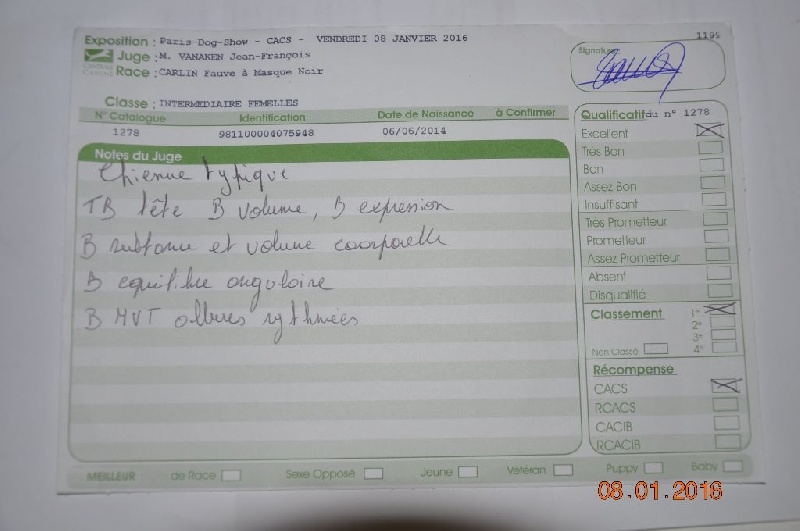 1199
Exposition : Paris Dog-Show - CACS - VENDREDI 08 JANVIER 2016
Juge : M. VANAKEN Jean-François
CENTRALE CANINE
Race : CARLIN Fauve à Masque Noir
Signature
Classe : INTERMEDIAIRE FEMELLES
N° Catalogue Identification Date de Naissance à Confirmer
1278 981100004075948 06/06/2014
Notes du Juge
Chienne typique
TB tête B volume, B expression
B substance et volume corporelle
B equilibre angulaire
B MVT allures rythmées
Qualificatif du n° 1278
Excellent
Très Bon
Bon
Assez Bon
Insuffisant
Très Prometteur
Prometteur
Assez Prometteur
Absent
Disqualifié
Classement 1°
2°
3°
Non Classé 4°
Récompense
CACS
RCACS
CACIB
RCACIB
MEILLEUR : de Race Sexe Opposé Jeune Vétéran Puppy Baby
08.01.2016